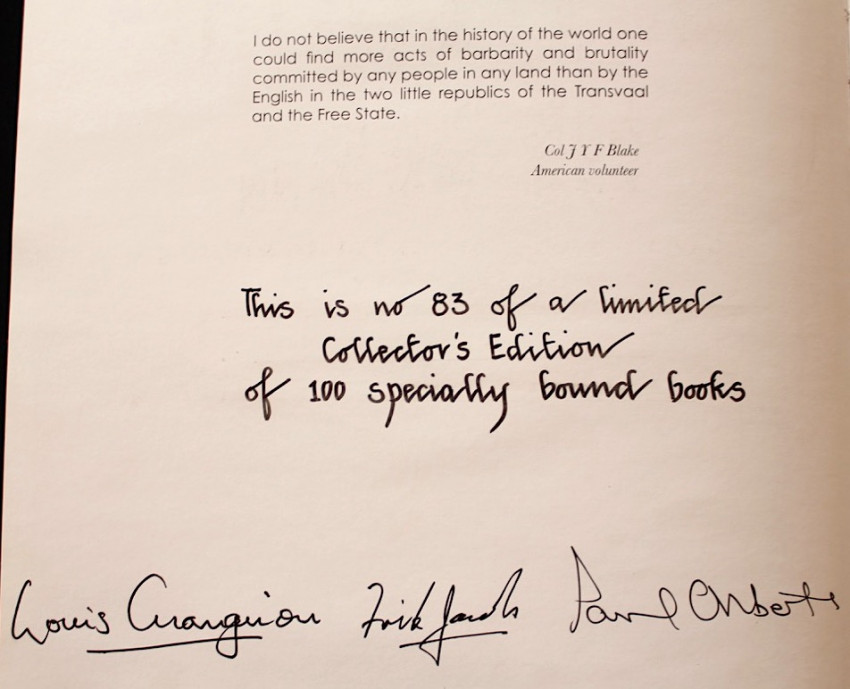 I do not believe that in the history of the world one
could find more acts of barbarity and brutality
committed by any people in any land than by the
English in the two little republics of the Transvaal
and the Free State.
Col J Y F Blake
American volunteer
This is no 83 of a limited
Collector's Edition
of 100 specially bound books
Louis Changuion Frik Jacobs Paul Alberts